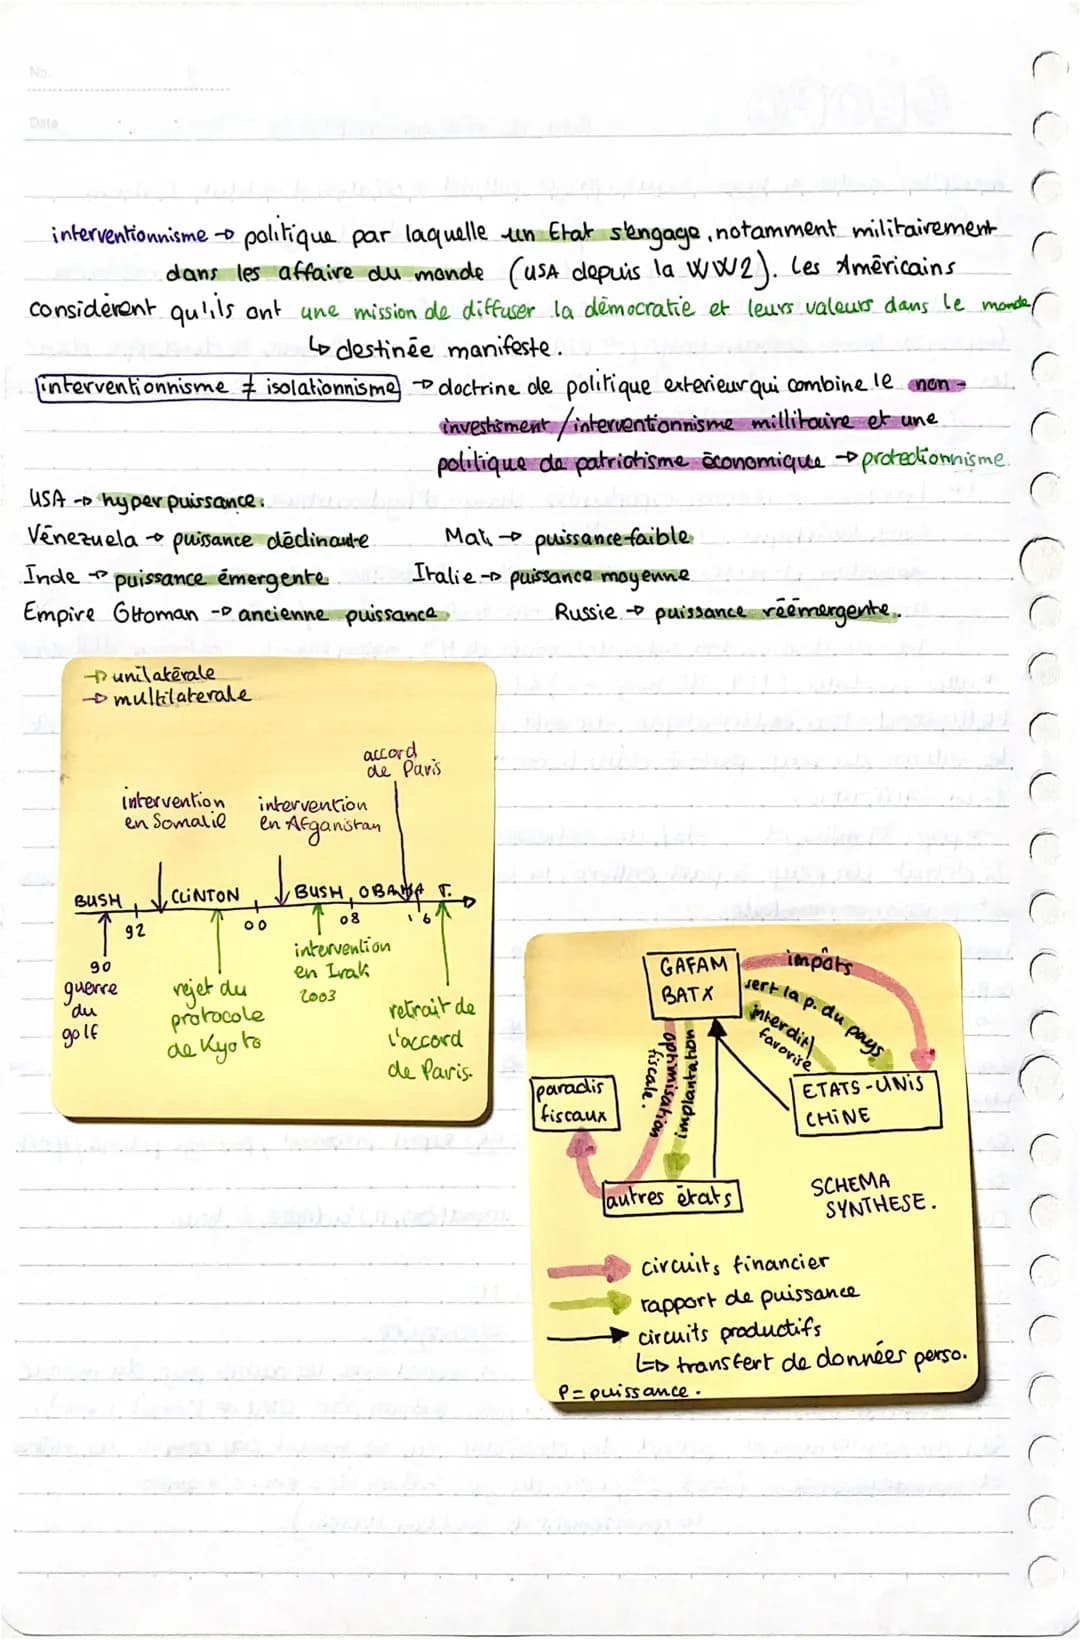 No.
Date
interventionnisme → politique par laquelle un Etat s'engage, notamment militairement
dans les affaire du monde (USA depuis la WW2). Les Américains
considèrent qu'ils ont une mission de diffuser la démocratie et leurs valeurs dans le monde
↳ destinée manifeste.
interventionnisme ≠ isolationnisme → doctrine de politique exterieur qui combine le non-
investisment / interventionnisme millitaire et une
politique de patriotisme économique → protectionnisme.
USA → hyper puissance.
Vénezuela → puisance déclinante
Mali → puissance faible
Inde → puissance émergente
Italie → puissance moyenne
Empire Ottoman → ancienne puissance
Russie → puissance réémergente.
→ unilatérale
→ multilaterale
accord
de Paris
intervention
en Somalie
intervention
en Afganistan
BUSH CLINTON BUSH OBAMA T.
92 00 08 16
90
guerre
du
golf
rejet du
protocole
de Kyoto
intervention
en Irak
2003
retrait de
l'accord
de Paris.
GAFAM
BATX
impôts
sert la p. du pays
interdit/
favorise
ETATS-UNIS
CHINE
paradis
fiscaux
optimisation
fiscale.
implantation
autres états
SCHEMA
SYNTHESE.
circuits financier
rapport de puissance
circuits productifs
↳ transfert de données perso.
P = puissance.